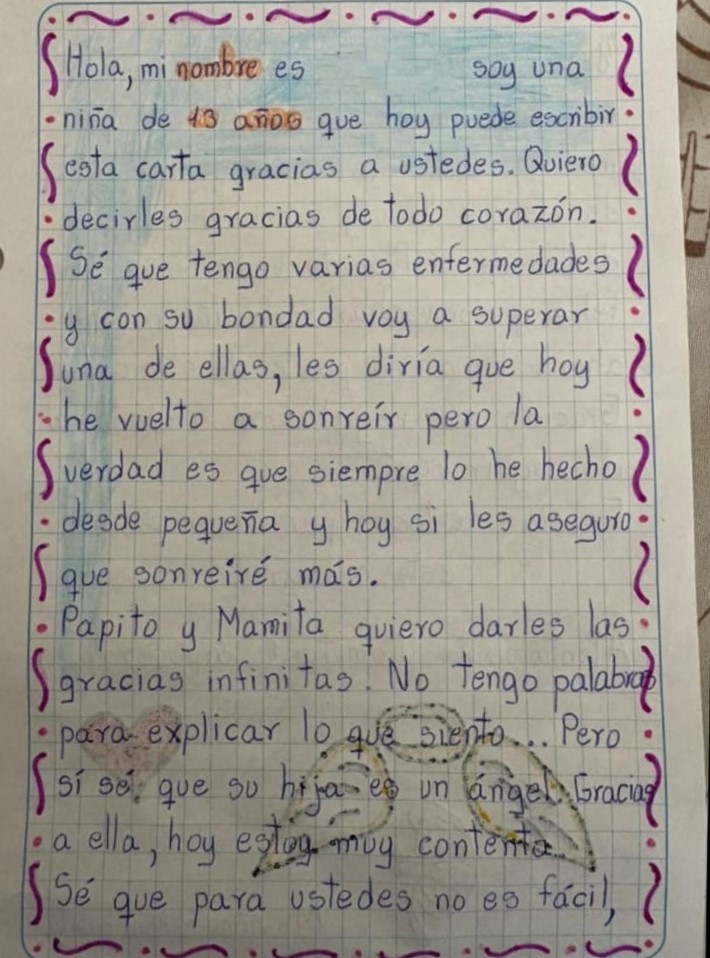 Hola, mi nombre es soy una
niña de 13 años que hoy puede escribir
esta carta gracias a ustedes. Quiero
decirles gracias de todo corazón.
Sé que tengo varias enfermedades
y con su bondad voy a superar
una de ellas, les diría que hoy
he vuelto a sonreír pero la
verdad es que siempre lo he hecho
desde pequeña y hoy si les aseguro
que sonreiré más.
Papito y Mamita quiero darles las
gracias infinitas. No tengo palabras
para explicar lo que siento... Pero
sí sé que su hija es un ángel. Gracias
a ella, hoy estoy muy contenta.
Sé que para ustedes no es fácil,